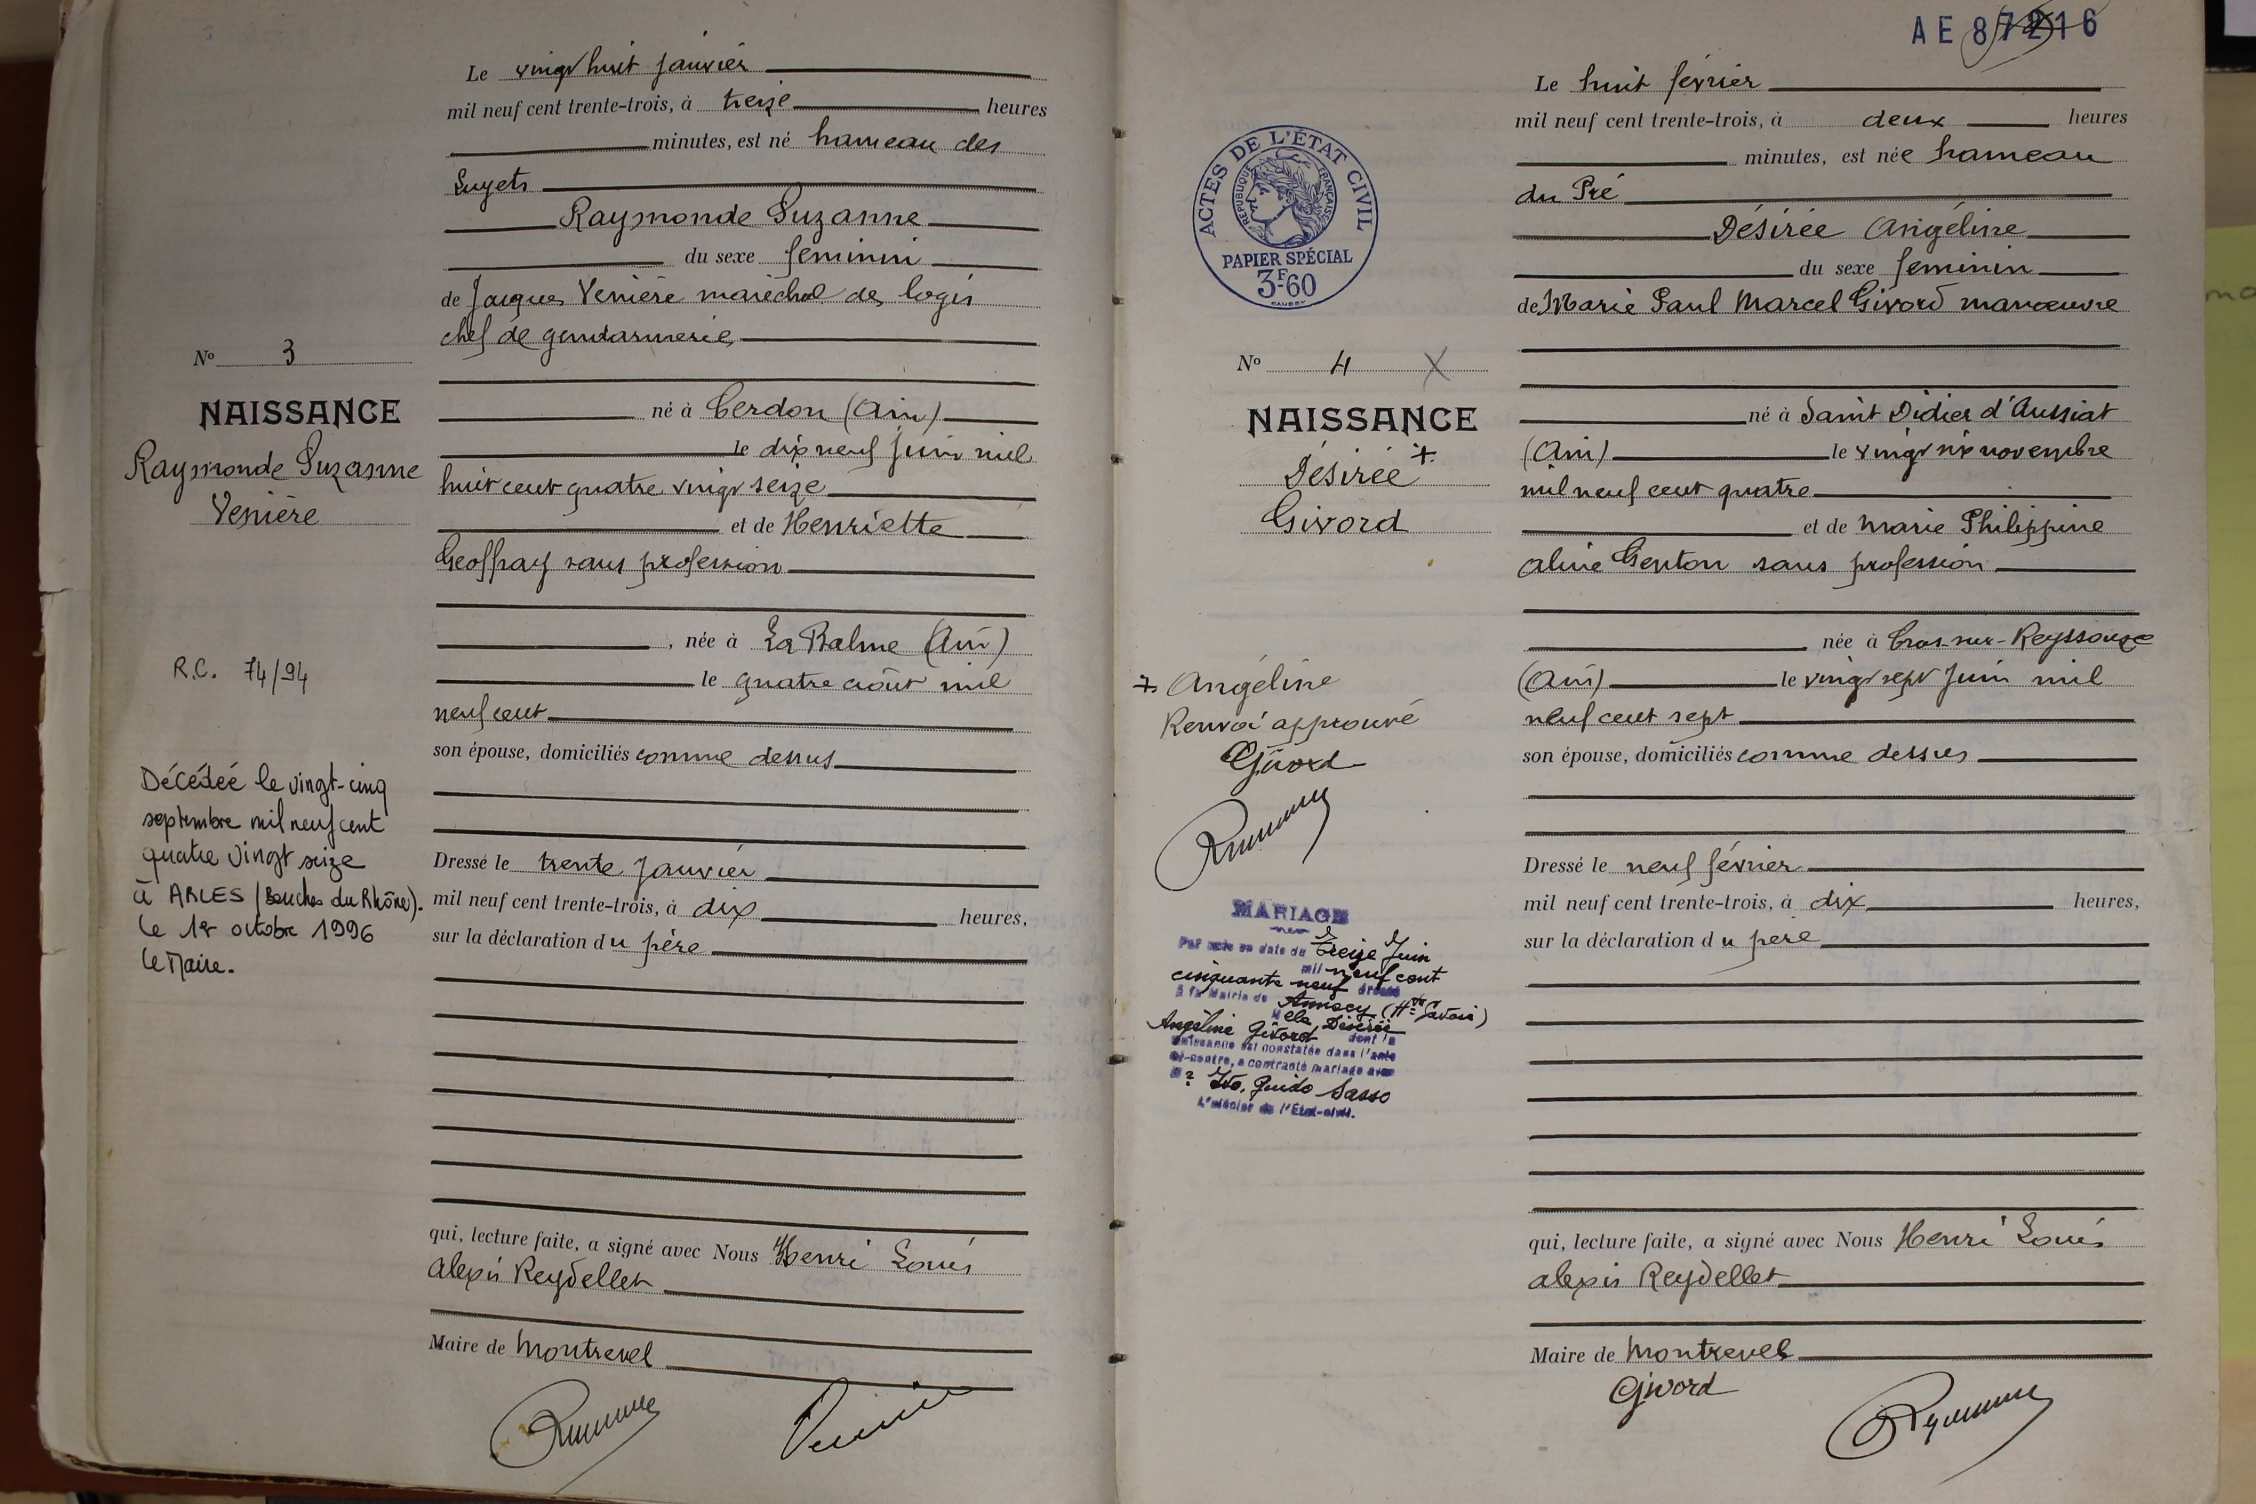 Le vingt huit janvier
mil neuf cent trente-trois, à treize heures
minutes, est né hameau des
Luyets
Raymonde Suzanne
du sexe féminin
de Jacques Venière maréchal des logis
chef de gendarmerie
né à Cerdon (Ain)
le dix neuf juin mil
huit cent quatre vingt seize
et de Henriette
Geoffray sans profession
, née à La Balme (Ain)
le quatre août mil
neuf cent
son épouse, domiciliés comme dessus
Dressé le trente janvier
mil neuf cent trente-trois, à dix heures,
sur la déclaration du père
qui, lecture faite, a signé avec Nous Henri Louis
Alexis Reydellet
Maire de Montrevel
No 3
NAISSANCE
Raymonde Suzanne
Venière
R.C. 74/94
Décédée le vingt-cinq
septembre mil neuf cent
quatre vingt seize
à ARLES (Bouches du Rhône).
le 1er octobre 1996
le Maire.
AE 87216
Le huit février
mil neuf cent trente-trois, à deux heures
minutes, est née hameau
du Pré
Désirée Angéline
du sexe féminin
de Marie Paul Marcel Givord manœuvre
né à Saint Didier d'Aussiat
(Ain) le vingt six novembre
mil neuf cent quatre
et de Marie Philippine
Aline Genton sans profession
née à Cras-sur-Reyssouze
(Ain) le vingt sept juin mil
neuf cent sept
son épouse, domiciliés comme dessus
Dressé le neuf février
mil neuf cent trente-trois, à dix heures,
sur la déclaration du père
qui, lecture faite, a signé avec Nous Henri Louis
Alexis Reydellet
Maire de Montrevel
Givord
ACTES DE L'ÉTAT CIVIL
RÉPUBLIQUE FRANÇAISE
PAPIER SPÉCIAL
3F60
No 4 X
NAISSANCE
Désirée +
Givord
+ Angéline
Renvoi approuvé
Givord
MARIAGE
Par acte en date du treize Juin
mil neuf cent
cinquante neuf dressé
à la Mairie de Annecy (Hte Savoie)
Melle Désirée
Angéline Givord dont la
naissance est constatée dans l'acte
ci-contre, a contracté mariage avec
Mr Ito, Guido Sasso
L'officier de l'Etat-civil.